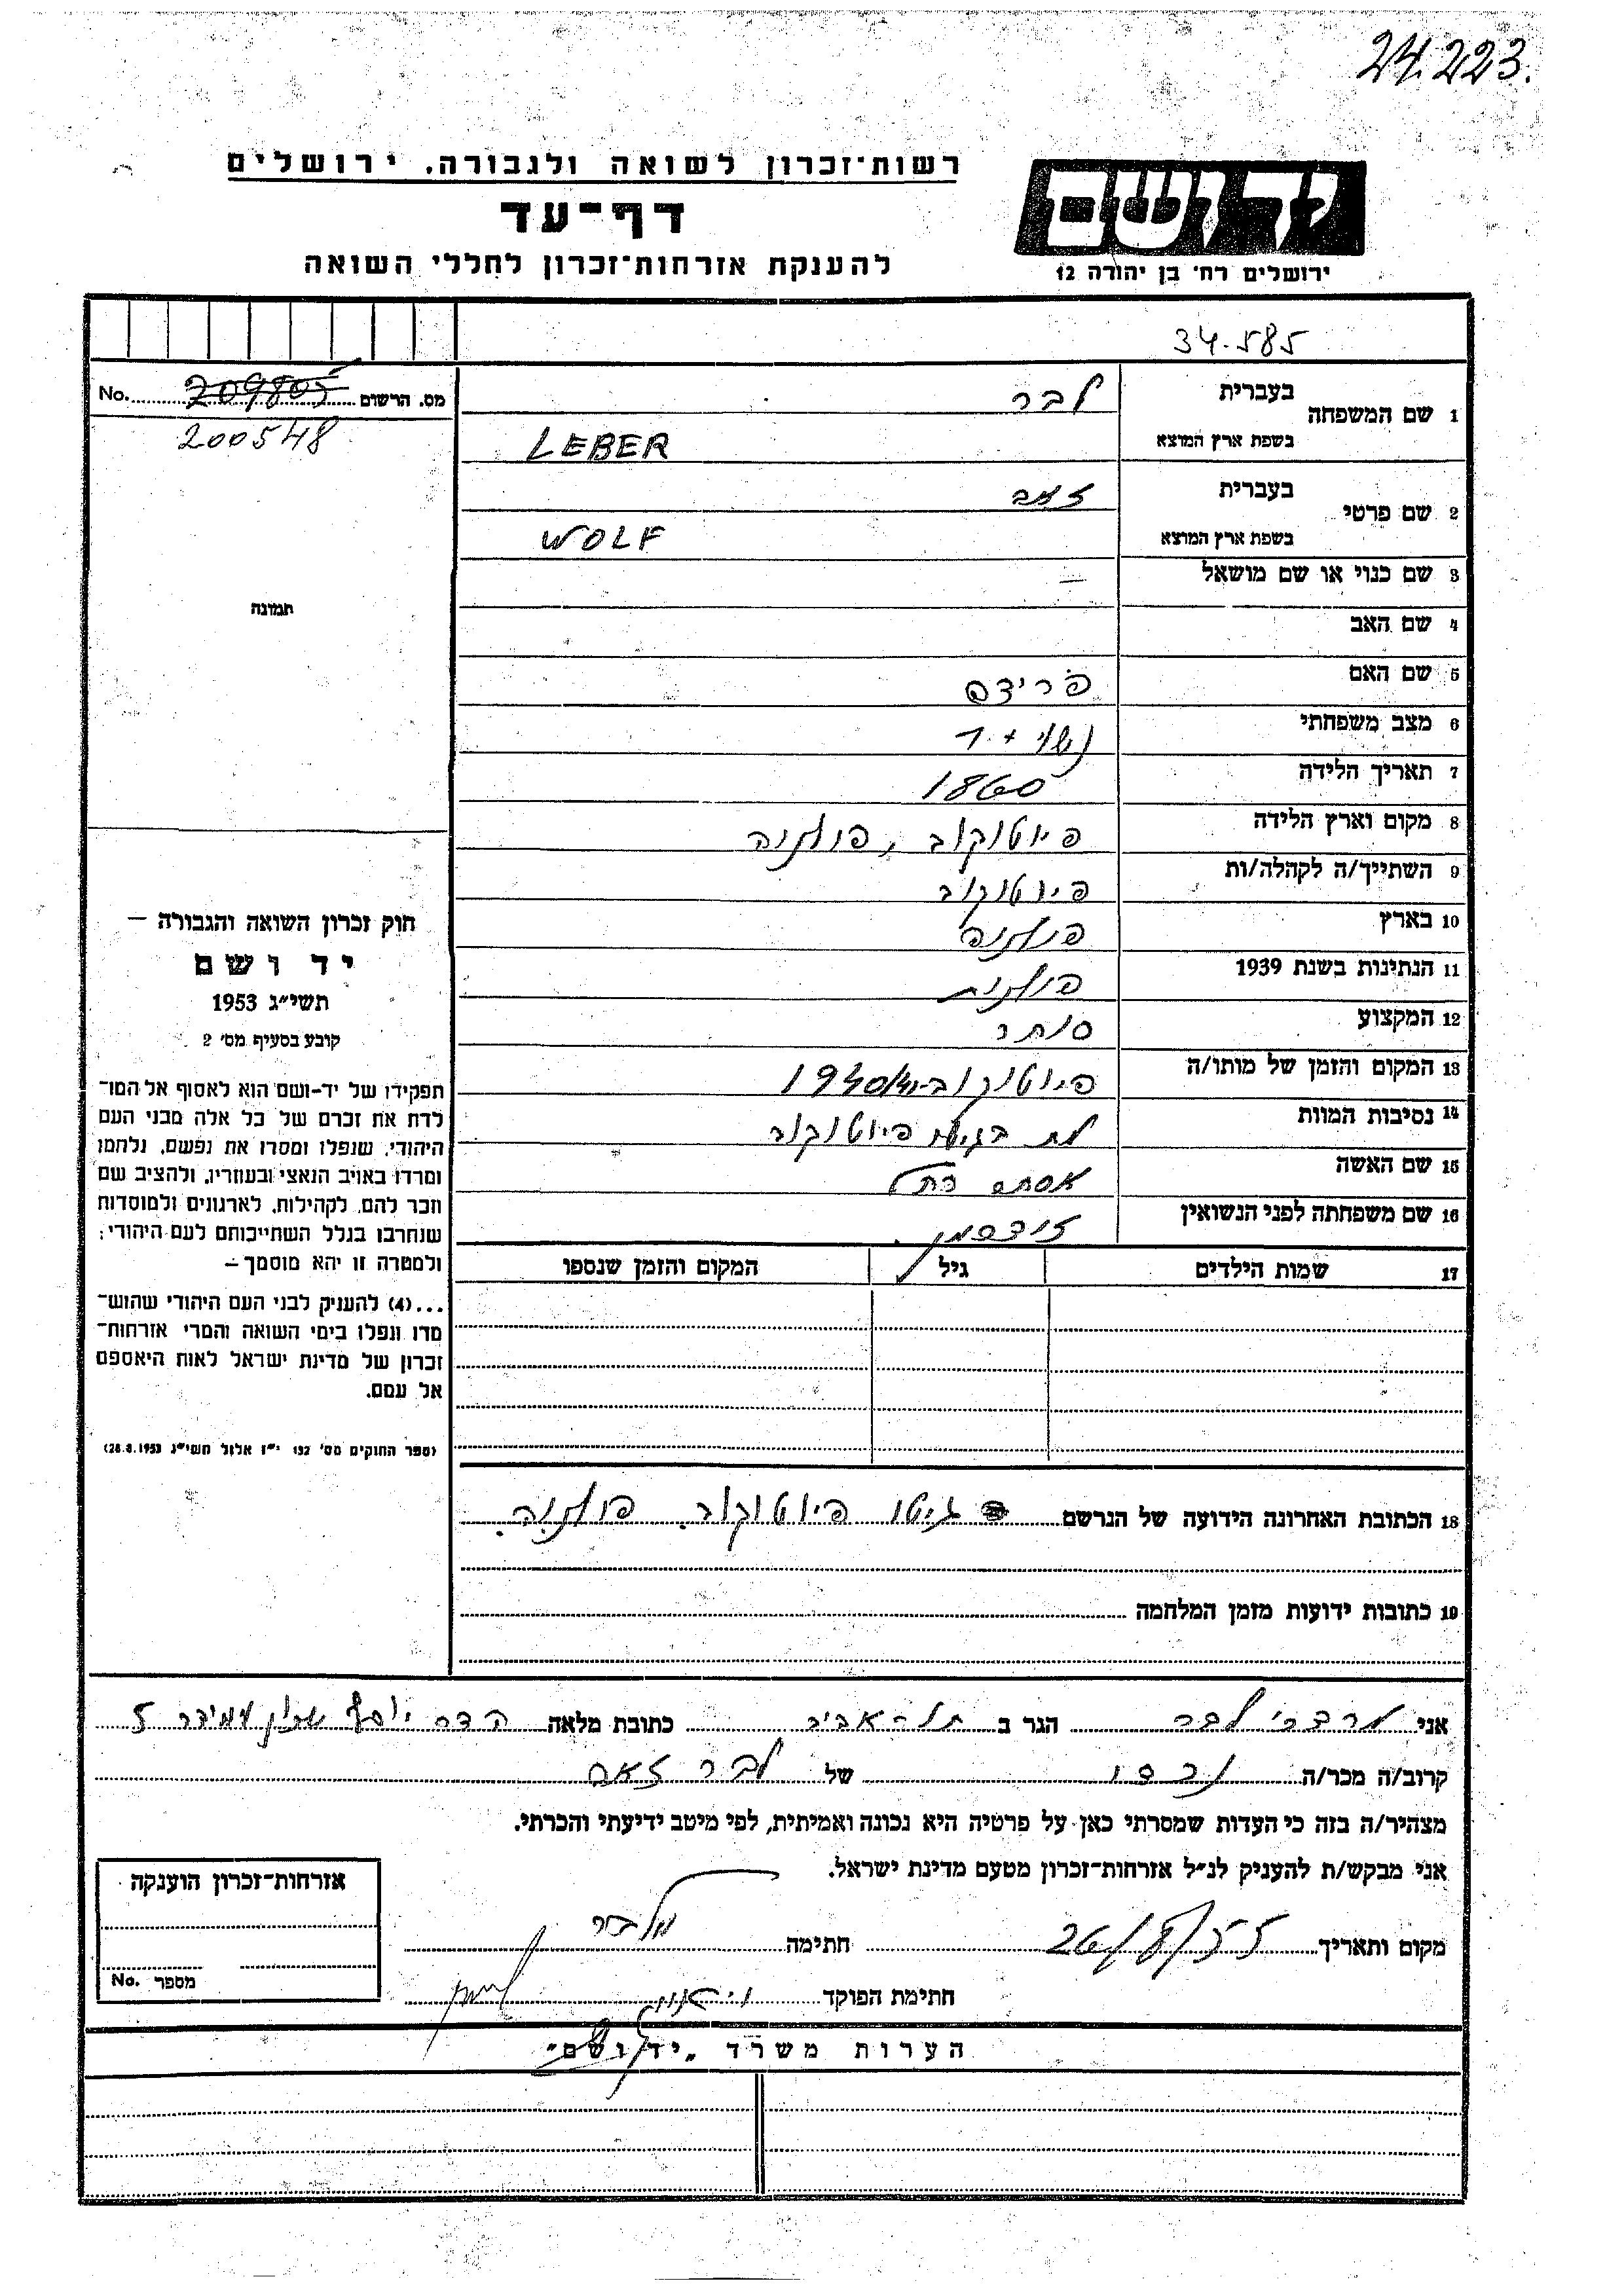 24.223.
רשות־זכרון לשואה ולגבורה, ירושלים
יד ושם
דף־עד
ירושלים רח' בן יהודה 12
להענקת אזרחות־זכרון לחללי השואה
34.585
מס. הרשום 209805 No.
200548
תמונה
1 שם המשפחה בעברית לבר
בשפת ארץ המוצא LEBER
2 שם פרטי בעברית זאב
בשפת ארץ המוצא WOLF
3 שם כנוי או שם מושאל —
4 שם האב
5 שם האם פרידה
6 מצב משפחתי נשוי + 7
7 תאריך הלידה 1860
8 מקום וארץ הלידה פיוטקוב, פולניה
9 השתייך/ה לקהלה/ות פיוטקוב
10 בארץ פולניה
11 הנתינות בשנת 1939 פולנית
12 המקצוע סוחר
13 המקום והזמן של מותו/ה פיוטקוב-1940/41
14 נסיבות המוות מת בגיטו פיוטקוב
15 שם האשה אסתר רחל
16 שם משפחתה לפני הנשואין
17 שמות הילדים גיל המקום והזמן שנספו
18 הכתובת האחרונה הידועה של הנרשם גיטו פיוטקוב. פולניה.
19 כתובות ידועות מזמן המלחמה
חוק זכרון השואה והגבורה —
יד ושם
תשי"ג 1953
קובע בסעיף מס' 2
תפקידו של יד-ושם הוא לאסוף אל המו־
לדת את זכרם של כל אלה מבני העם
היהודי, שנפלו ומסרו את נפשם, נלחמו
ומרדו באויב הנאצי ובעוזריו, ולהציב שם
וזכר להם, לקהילות, לארגונים ולמוסדות
שנחרבו בגלל השתייכותם לעם היהודי;
ולמטרה זו יהא מוסמך –
...(4) להעניק לבני העם היהודי שהוש־
מדו ונפלו בימי השואה והמרי אזרחות־
זכרון של מדינת ישראל לאות היאספם
אל עמם.
(ספר החוקים מס' 132 י"ז אלול תשי"ג 28.8.1953)
אני מרדכי לבר הגר ב תל-אביב כתובת מלאה הדר יוסף שכון עמידר 5
קרוב/ה מכר/ה נכדו של לבר זאב
מצהיר/ה בזה כי העדות שמסרתי כאן על פרטיה היא נכונה ואמיתית, לפי מיטב ידיעתי והכרתי.
אני מבקש/ת להעניק לנ"ל אזרחות־זכרון מטעם מדינת ישראל.
מקום ותאריך 26/8/55 חתימה מ. לבר
חתימת הפוקד
אזרחות־זכרון הוענקה
מספר No.
הערות משרד „יד ושם"